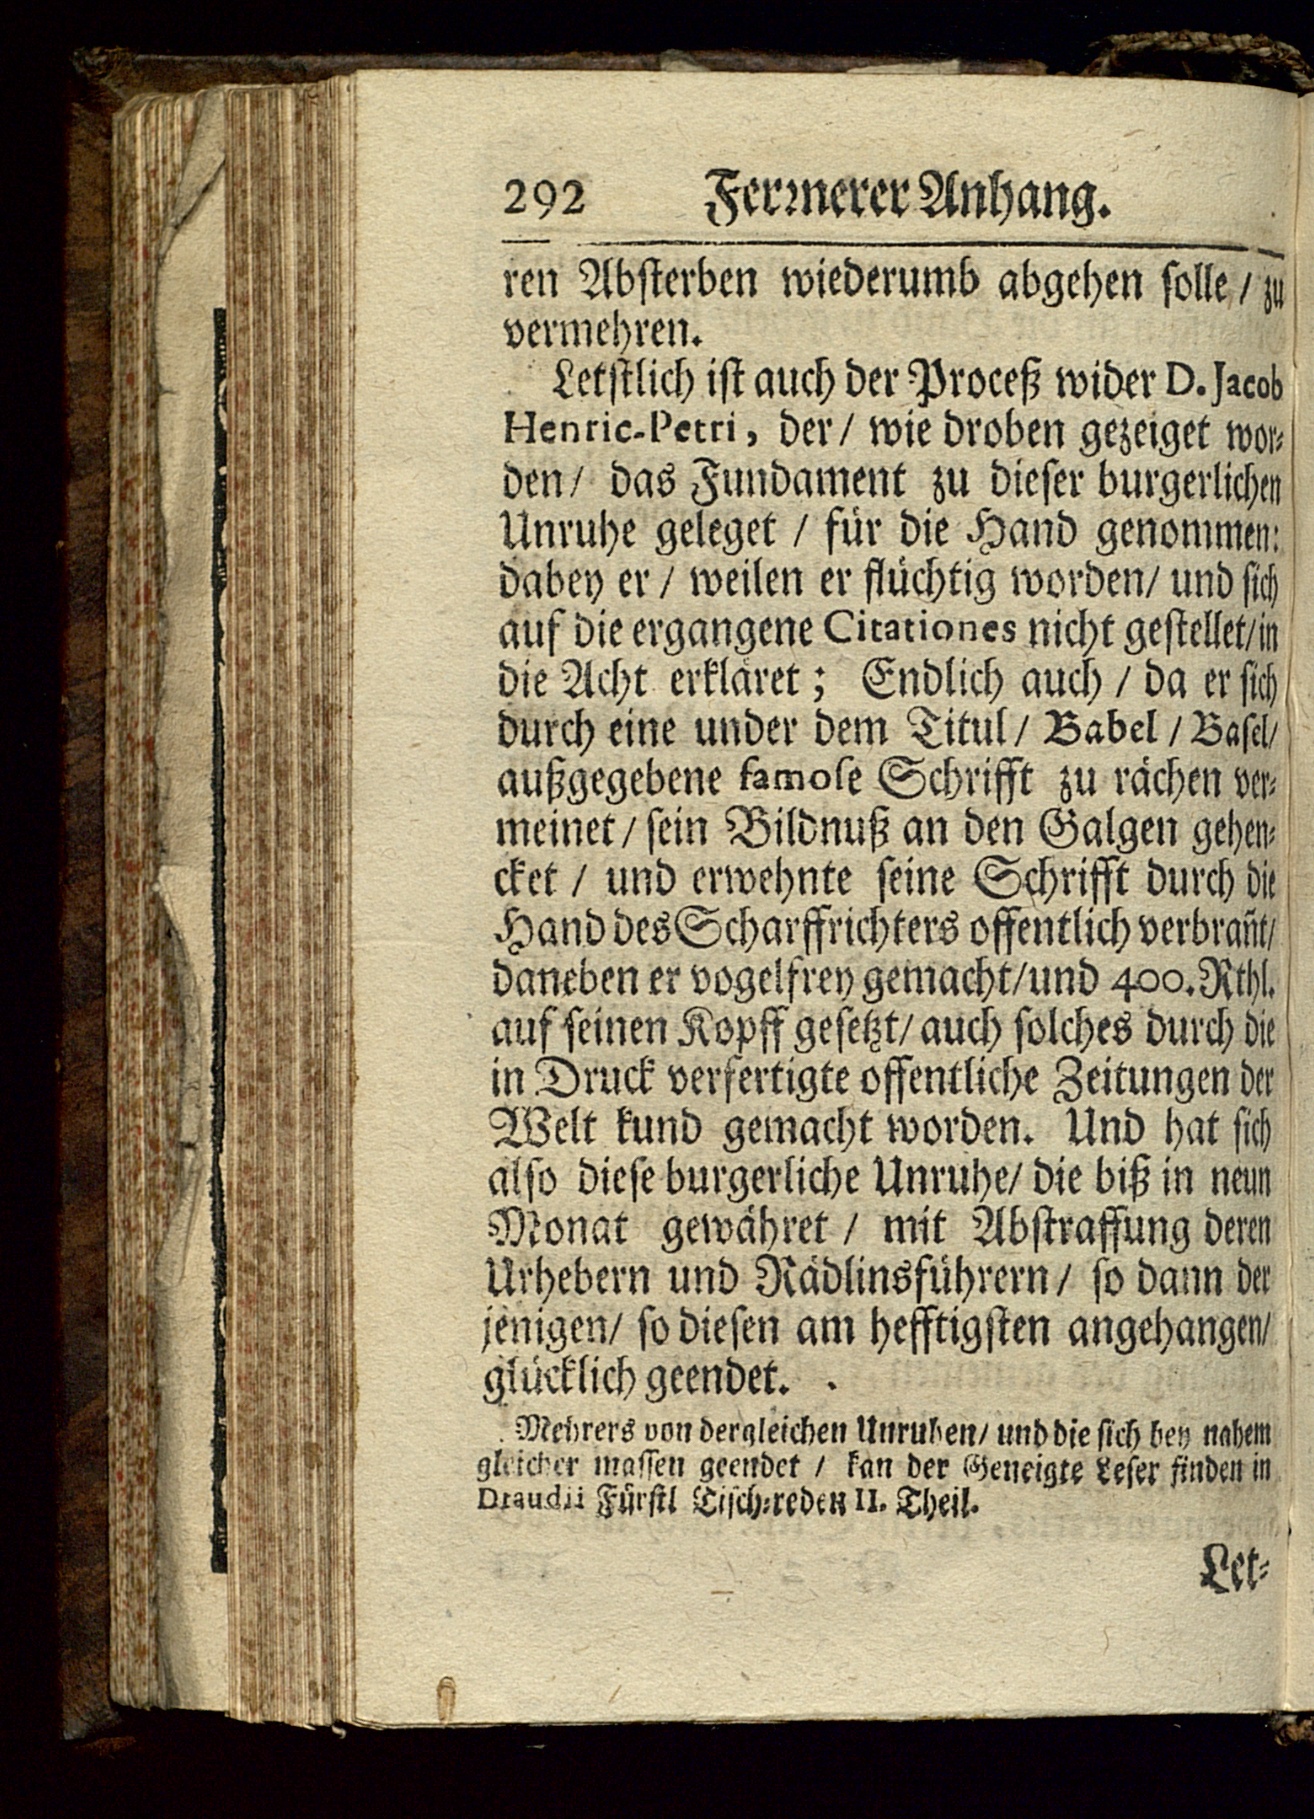 292 Fermerer Anhang.
ren Absterben wiederumb abgehen solle / zu
vermehren.
Letstlich ist auch der Proceß wider D. Jacob
Henric-Petri, der / wie droben gezeiget wor-
den / das Fundament zu dieser burgerlichen
Unruhe geleget / für die Hand genommen:
dabey er / weilen er flüchtig worden / und sich
auf die ergangene Citationes nicht gestellet / in
die Acht erkläret ; Endlich auch / da er sich
durch eine under dem Titul / Babel / Basel /
außgegebene famose Schrifft zu rächen ver-
meinet / sein Bildnuß an den Galgen gehen-
cket / und erwehnte seine Schrifft durch die
Hand des Scharffrichters offentlich verbrañt /
daneben er vogelfrey gemacht / und 400. Rthl.
auf seinen Kopff gesetzt / auch solches durch die
in Druck verfertigte offentliche Zeitungen der
Welt kund gemacht worden. Und hat sich
also diese burgerliche Unruhe / die biß in neun
Monat gewähret / mit Abstraffung deren
Urhebern und Rädlinsführern / so dann der
jenigen / so diesen am hefftigsten angehangen /
glücklich geendet.
Mehrers von dergleichen Unruhen / und die sich bey nahem
gleicher massen geendet / kan der Geneigte Leser finden in
Draudii Fürstl Tisch-reden II. Theil.
Let-